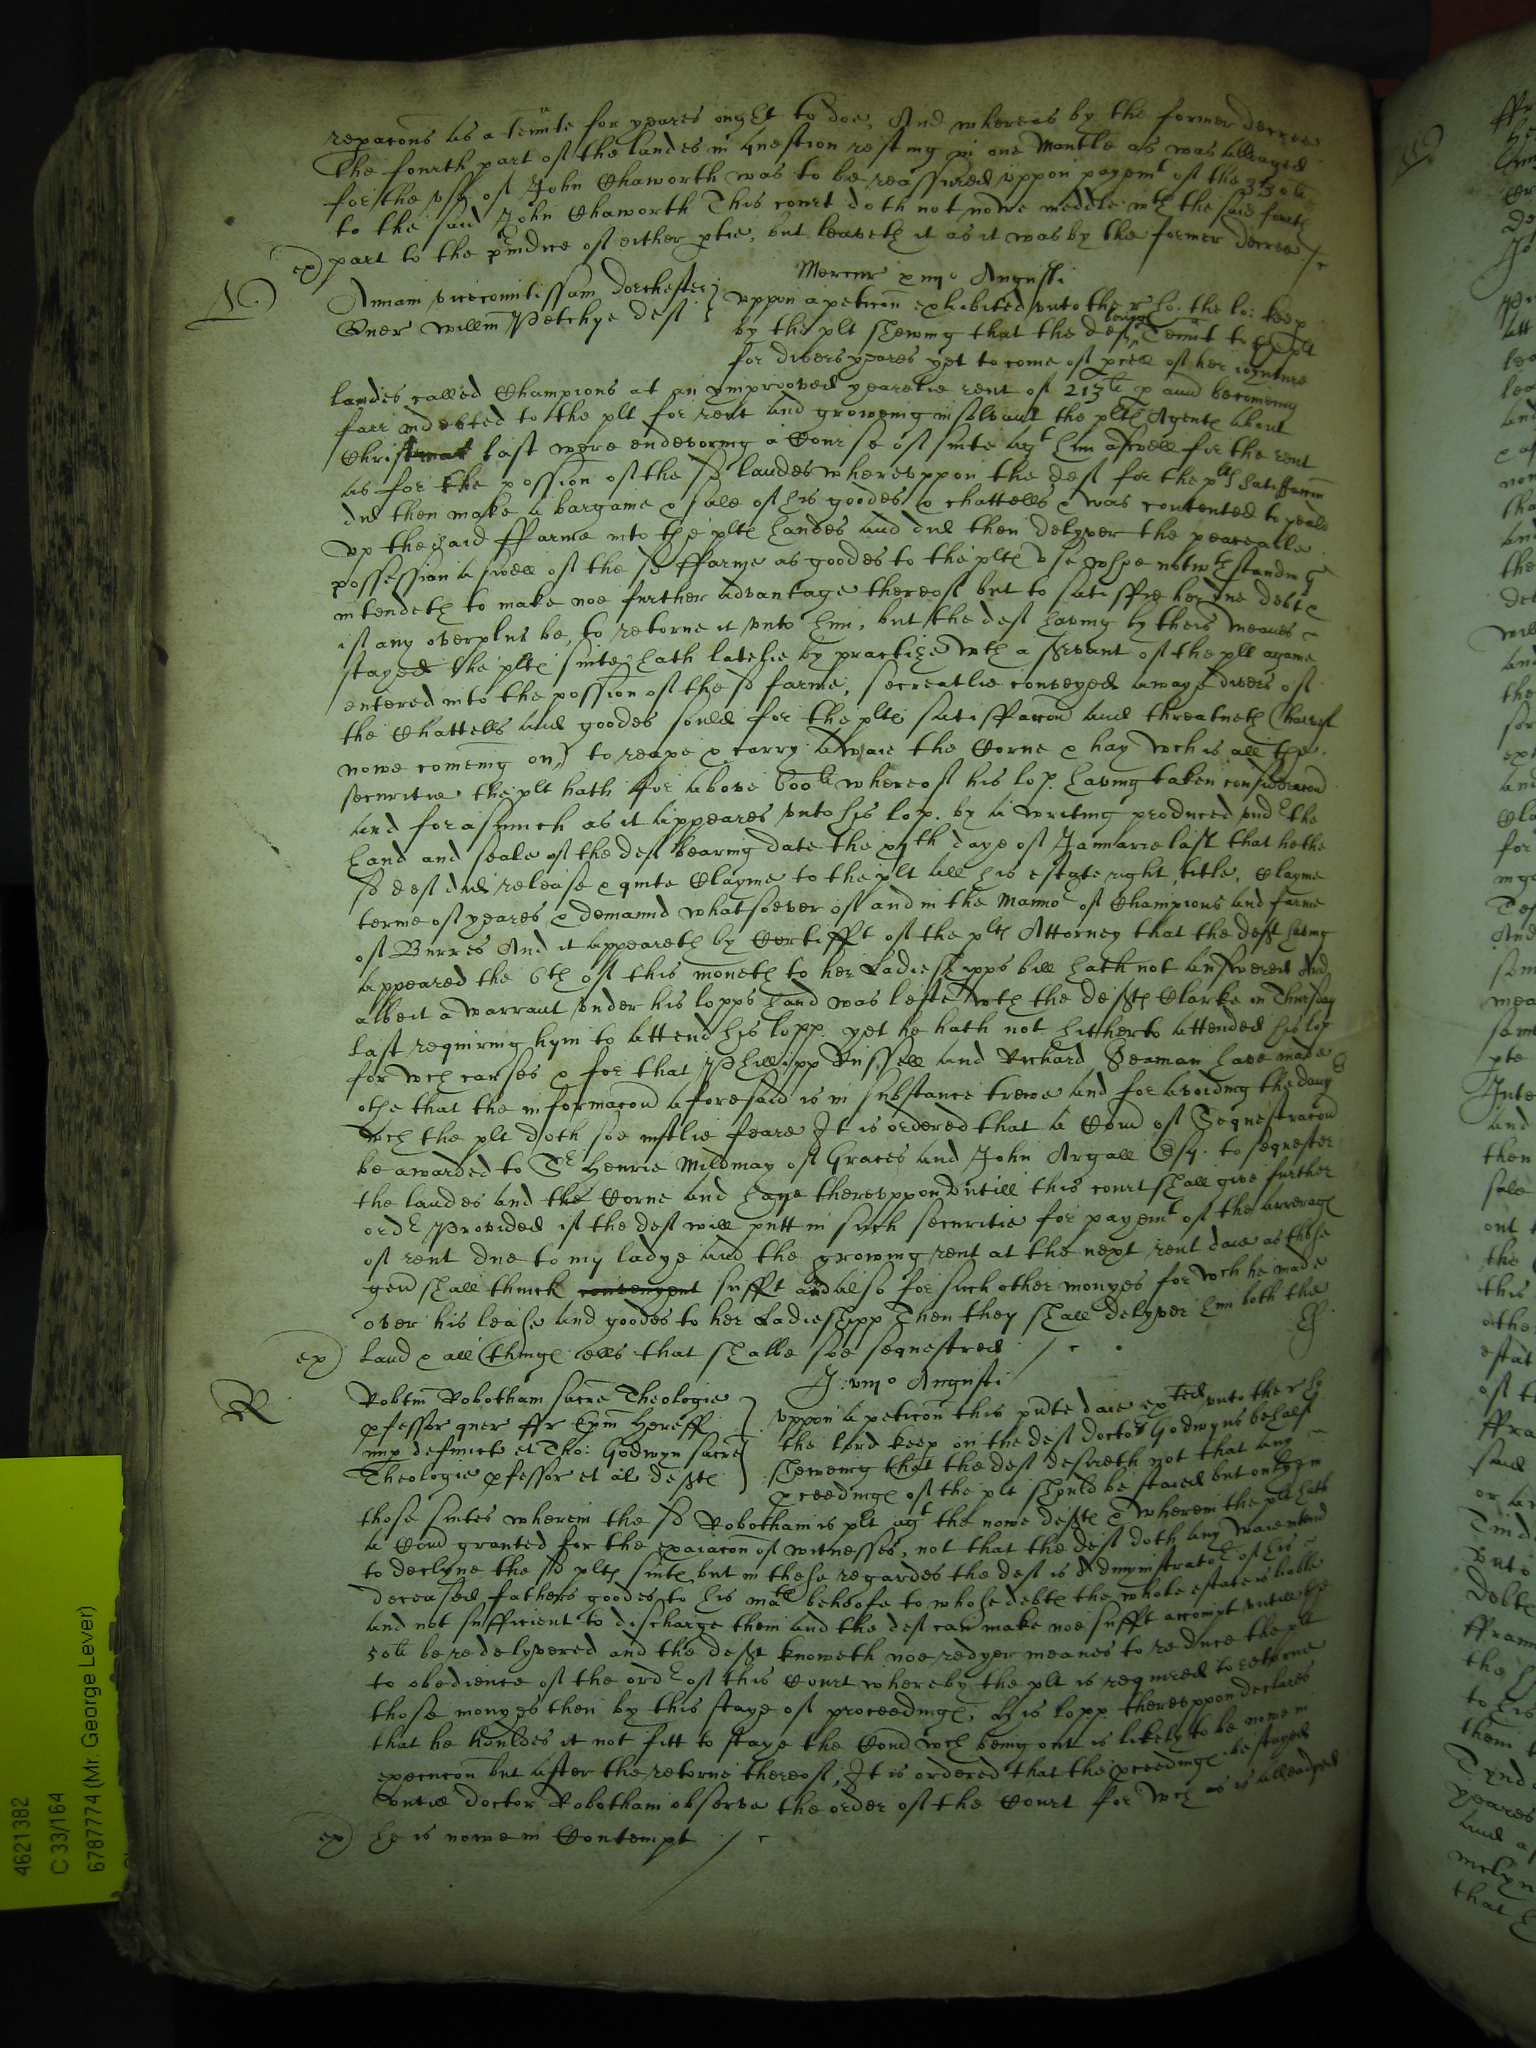 reparacons as a ten̄nte for yeares ought to doe, And whereas by the former decree
the fourth part of the landes in question resting in one Mantle as was alleaged
for the use of John Chaworth was to be reassured uppon payemt of the 330li
to the said John Chaworth This court doth not nowe meddle wth the said fourth
part to the p̱iudice of either ptie, but leaveth it as it was by the former decree
ex)
D.
Mercur x iijo Augusti
Annam vicecomitissam Dorchester
Quer Willm Petchye deft
uppon a peticon exhibited unto the r. ho. the lo: keep
by the plt shewing that the deft being Ten̄nt to the plt
for divers yeares yet to come of p̱cell of her ioynture
landes called Champions at an ymprooved yearelie rent of 213li p ann becomeing
farr indebted to the plt for rent and groweing insolvant the pltes Agentes about
Christmas last were endevoring a Course of suite agt him aswell for the rent
as for the possion of the sd landes whereuppon the deft for the plts satisfaccon
did then make a bargaine & sale of his goodes & chattells & was contented to yeald
up the said ffarme into the pltes handes and did then delyver the peaceable
possession aswell of the sd ffarme as goodes to the pltes use whoe notwthstanding
intendeth to make noe further advantage thereof but to satisfie her due debte
if any overplus be, to retorne it unto him, but the deft having by theis meanes
stayed the pltes suite, hath latelie by practize wth a servant of the plt againe
entered into the possion of the sd farme, secreatlie conveyed awaye divers of
the Chattells and goodes sould for the pltes satisfaccon and threatneth (harvest
nowe comeing on,) to reape & carry awaie the Corne & hay wch is all the
securitie the plt hath for above 600li whereof his lop. having taken consideracon
and forasmuch as it appeares unto his lop. by a writing produced undr the
hand and seale of the deft bearing date the xjth daye of Januarie last that he the
sd deft did release & quite Clayme to the plt all his estate right title, Clayme
terme of yeares & demaund whatsoever of and in the Mannor of Champions and farme
of Burres And it appeareth by Certifft of the plts Attorney that the deft having
appeared the 6th of this moneth to her Ladieshipps bill hath not answered And
albeit a warrant under his lopps hand was lefte wth the deftes Clarke on Thursday
last requiring hym to attend his lopp. yet he hath not hitherto attended his lop
for wch causes & for that Phillipp Russell and Richard Seaman have made
othe that the informacon aforesaid is in substance trewe and for avoiding the daungr
wch the plt doth soe iustlie feare It is ordered that a Com̄ of Sequestracon
be awarded to Sr Henrie Mildmay of Graces and John Argall Esq. to sequester
the landes and the Corne and haye thereuppon untill this court shall give further
ordr Provided if the deft will putt in such securitie for payemt of the arrerages
of rent due to my ladye and the growing rent at the next rent daie as theise
gen shall thinck convenyent sufft and also for such other monyes for wch he made
over his lease and goodes to her Ladieshipp Then they shall delyver him both the
land & all things ells that shalbe soe sequestred
ex)
R
J. vijo Augusti
Robtm Robotham sacre Theologie
p̱fessor quer ffr Epm Hereff
nup defunct et Tho: Godwyn sacre
Theologie p̱fessor et al deftes
uppon a peticon this pn̄te daie ex̱ted unto the r. ho
the lord keep on the deft doctor Godwyns behalf
sheweing that the deft desireth not that any
p̱ceedings of the plt should be staied but only in
those suites wherein the sd Robotham is plt agt the nowe deftes & wherein the plt hath
a Com̄ granted for the exaiacon of witnesses, not that the deft doth any waie intend
to declyne the sd pltes suite but in these regardes the deft is Administrator of his
deceased fathers goodes to his mats behoofe to whose debte the whole estate is liable
and not sufficient to discharge them and the deft can make noe sufft accompt untill the
50li be redelyvered and the deft knoweth noe redyer meanes to reduce the plt
to obedience of the ordr of this Court whereby the plt is required to retorne
those monyes then by this staye of proceedings, His lopp. thereuppon declares
that he houldes it not fitt to staye the Com̄ wch being out is likely to be nowe in
execucon but after the retorne thereof, It is ordered that the p̱ceedings be stayed
untill doctor Robotham observe the order of the Court for wch as is alleadged
ex) he is nowe in Contempt
4621382
C 33/164
6787774 (Mr. George Lever)